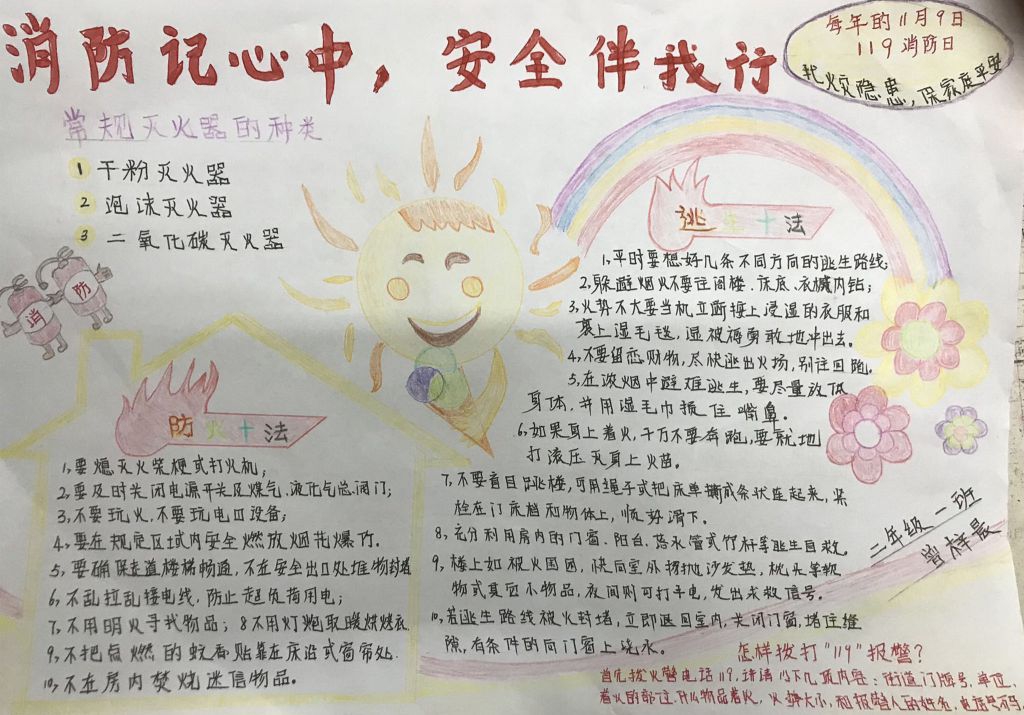 消防记心中，安全伴我行
每年的11月9日
119消防日
找火灾隐患，保家庭平安
常规灭火器的种类
1 干粉灭火器
2 泡沫灭火器
3 二氧化碳灭火器
消 防
逃生十法
1、平时要想好几条不同方向的逃生路线;
2、躲避烟火不要往阁楼、床底、衣橱内钻;
3、火势不大要当机立断披上浸湿的衣服和
裹上湿毛毯，湿被褥勇敢地冲出去。
4、不要留恋财物，尽快逃出火场，别往回跑。
5、在浓烟中避难逃生，要尽量放低
身体，并用湿毛巾捂住嘴鼻。
6、如果身上着火，千万不要奔跑，要就地
打滚压灭身上火苗。
7、不要盲目跳楼，可用绳子或把床单撕成条状连起来，紧
栓在门床档和物体上，顺势滑下。
8、充分利用房内的门窗、阳台、落水管或竹杆等逃生自救。
9、楼上如被火围困，快向室外抛沙发垫，枕头等软
物或其它小物品，夜间则可打手电，发出求救信号。
10、若逃生路线被火封堵，立即退回室内，关闭门窗，堵住缝
隙，有条件的向门窗上浇水。
防火十法
1、要熄灭火柴梗或打火机;
2、要及时关闭电源开关及煤气、液化气总阀门;
3、不要玩火、不要玩电器设备;
4、要在规定区域内安全燃放烟花爆竹。
5、要确保走道楼梯畅通，不在安全出口处堆物封堵
6、不乱拉乱接电线，防止超负荷用电;
7、不用明火寻找物品；8不用灯炮取暖烘烤衣
9、不把点燃的蚊香贴靠在床沿或窗帘处.
10、不在房内焚烧迷信物品。
二年级一班
曾梓晨
怎样拨打"119"报警?
首先拨火警电话119,讲清以下几项内容：街道门牌号、单位、
着火的部位、什么物品着火，火势大小，和报警人的姓名、电话号码